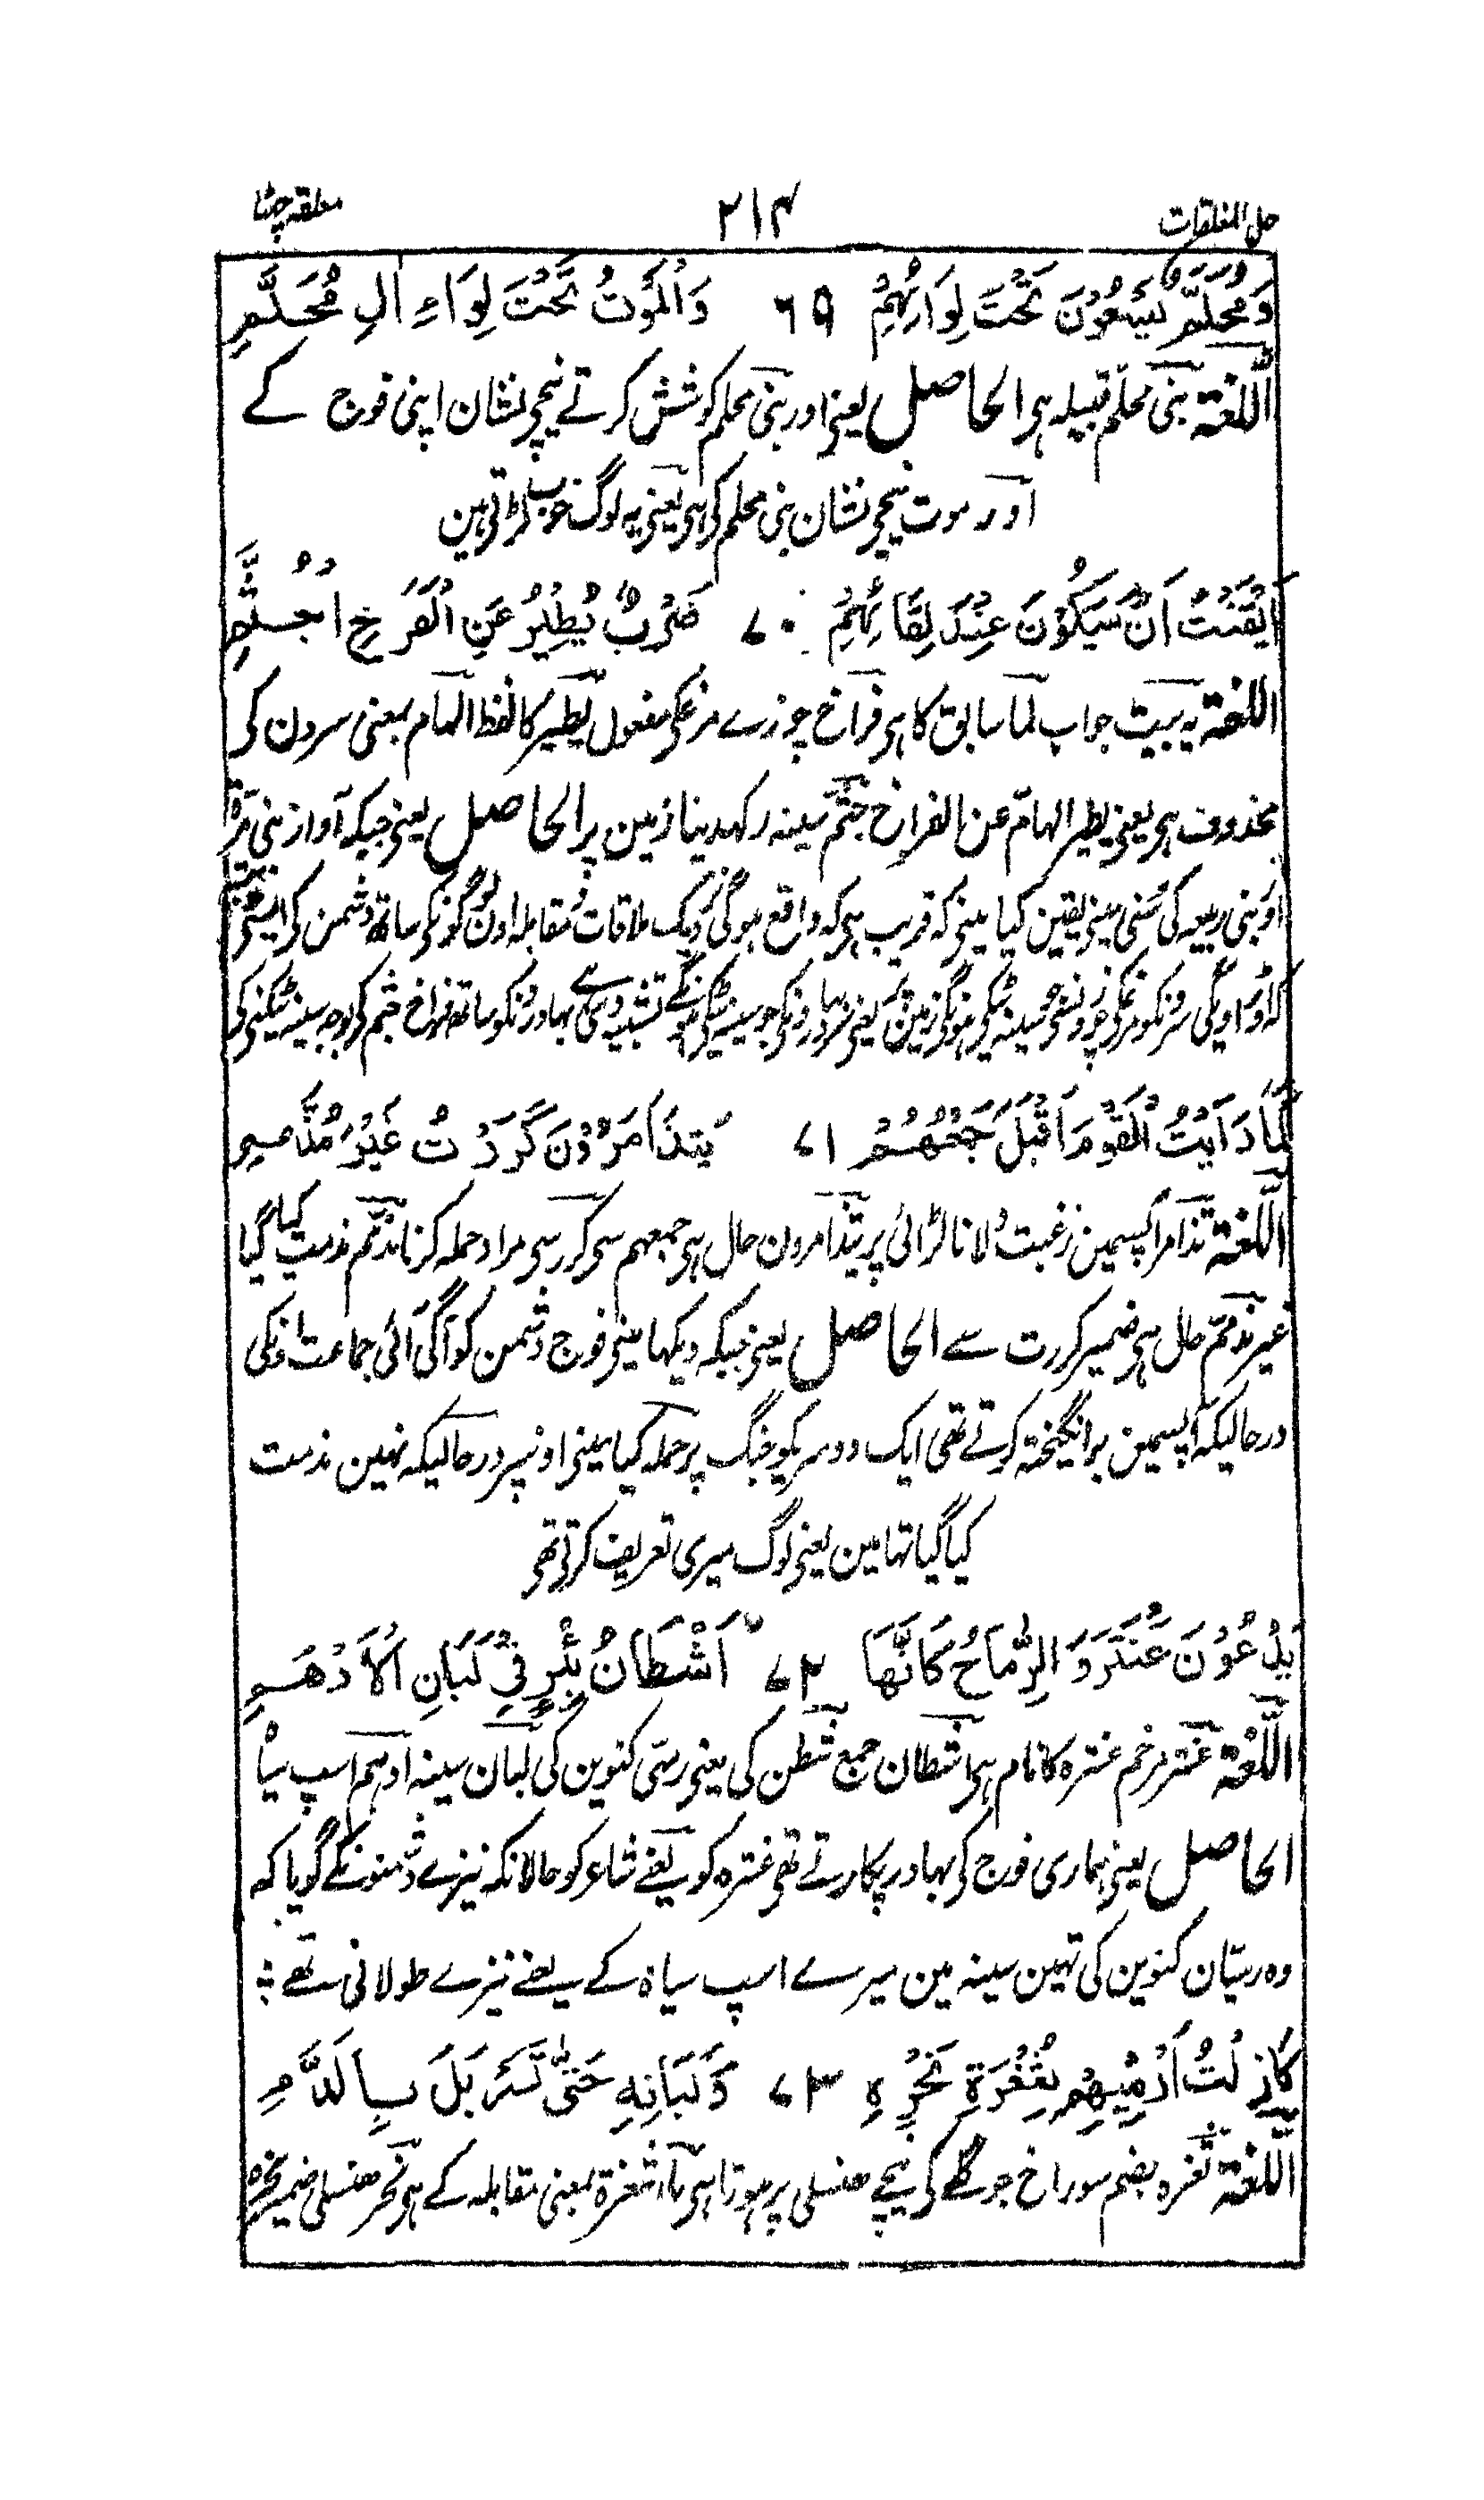 حل المغلقات ۲۱۴ معلقہ چٹا
وَمُحَلَّمٌ يَسْعَوْنَ تَحْتَ لِوَائِهِمْ ٦٩ وَالْمَوْتُ تَحْتَ لِوَاءِ اٰلِ مُحَلَّمِ
اللغۃ بنی محلم قبیلہ ہی الحاصل یعنی اور بنی محلم کوشش کرتے نیچے نشان اپنی فوج کے
اور موت نیچے نشان بنی محلم کی ہی یعنی یہ لوگ خوب لڑتی ہین
اَيْقَنْتُ اَنْ سَيَكُوْنُ عِنْدَ لِقَائِهِمْ ۷۰ ضَرْبٌ يُطِيْرُ عَنِ الْفِرَاخِ الْجُثَّمِ
اللغۃ یہ بیت جواب لما سابق کا ہی فراخ چوزے مرغ کی مفعول یطیر کا لفظ الہام بمعنی سرون کی
محذوف ہی یعنی یطیر الہام عن الفراخ جثم سینہ رکھدینا زمین پر الحاصل یعنی جبکہ آواز بنی مرہ
اور بنی ربیعہ کی سُنی مینی یقین کیا مینی کہ قریب ہی کہ واقع ہوگی نزدیک ملاقات و مقابلہ اون لوگونکی ساتھ دشمن کی ایسی
کہ اوڑاویگی سرونکو مرغ کی چوزونسی جو سینہ ٹیکی ہونگی زمین پر یعنی سردارونکی جو سینہ ٹیکی ہونگے تشبیہ دی ہے بہادرونکو ساتھ فراخ جثم کی بوجہ سینہ ٹیکنی کی
لَمَّا رَاَيْتُ الْقَوْمَ اَقْبَلَ جَمْعُهُمْ ۷۱ يَتَذَامَرُوْنَ كَرَرْتُ غَيْرَ مُذَمَّمِ
اللغۃ تذامر آپسمین رغبت دُلانا لڑائی پر یتذامرون حال ہی جمعہم سی کرر سی مراد حملہ کرنا مذمم مذمت کیا گیا
غیر مذمم حال ہی ضمیر کررت سے الحاصل یعنی جبکہ دیکھا مینی فوج دشمن کو آگی آئی جماعت اونکی
درحالیکہ آپسمین برانگیختہ کرتے تھی ایک دوسریکو جنگ پر حملہ کیا مینی اونپر درحالیکہ نہین مذمت
کیا گیا تہا مین یعنی لوگ میری تعریف کرتی تھی
يَدْعُوْنَ عَنْتَرَ وَالرِّمَاحُ كَاَنَّهَا ۷۲ اَشْطَانُ بِئْرٍ فِيْ لَبَانِ الْاَدْهَمِ
اللغۃ عنتر مرخم عنترہ کا نام ہی اشطان جمع شطن کی یعنی رسی کنوین کی لبان سینہ ادہم اسپ سیاہ
الحاصل یعنی ہماری فوج کی بہادر پکارتے تھی عنترہ کو یعنے شاعر کو حالانکہ نیزے دشمنونکے گویا کہ
وہ رسیان کنوین کی تہین سینہ مین میرے اسپ سیاہ کے یعنے نیزے طولانی تھے
مَا زِلْتُ اَرْمِيْهِمْ بِثُغْرَةِ نَحْرِهٖ ۷۳ وَلَبَانِهٖ حَتّٰى تَسَرْبَلَ بِالدَّمِ
اللغۃ ثغرہ بضم سوراخ جو گلے کی نیچے ہنسلی پر ہوتا ہی یا ثغرۃ بمعنی مقابلہ کے ہی نحر ہنسلی ضمیر نحرہ